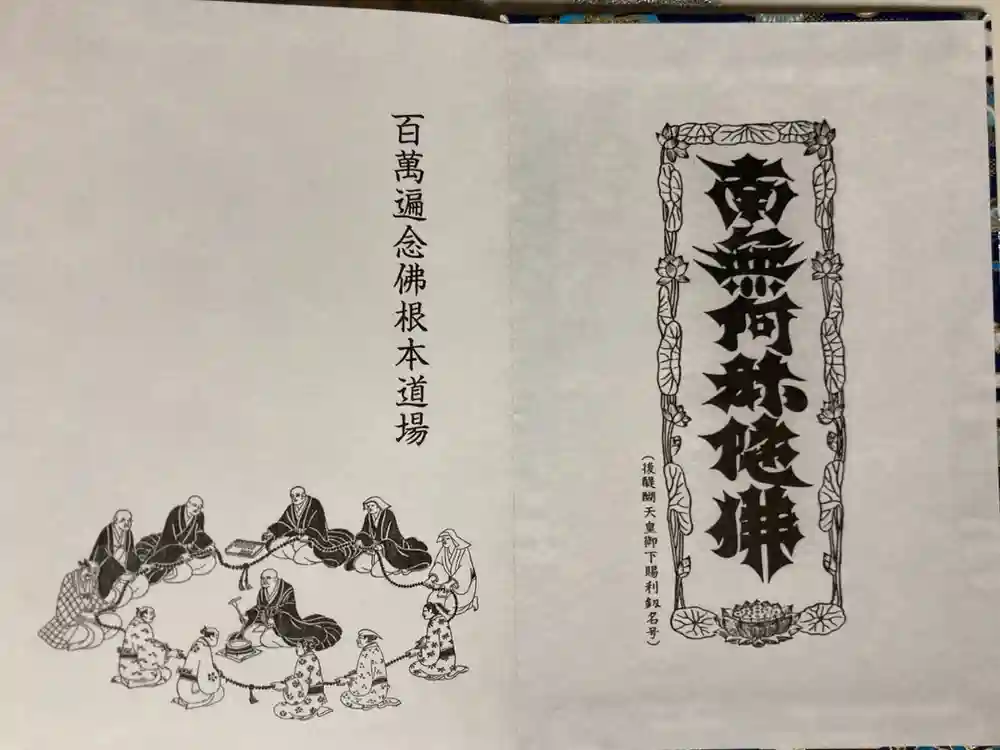 南無阿弥陀佛
(後醍醐天皇御下賜利剱名号)
百萬遍念佛根本道場